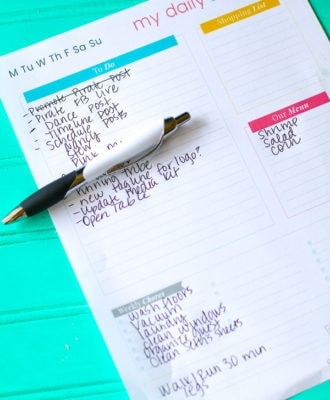 my daily
M Tu W Th F Sa Su
To Do
Shopping List
- Promote Pirate Post
- Pirate FB Live
- Dance Post
- Timeline Post
- Schedule Posts
Our Menu
shrimp
salad
corn
- new tagline for logo?
- update media kit
- Open Table
Weekly Chores
wash floors
Vacuum
laundry
clean windows
organize
clean sheets
Walk/Run 30 min.
legs